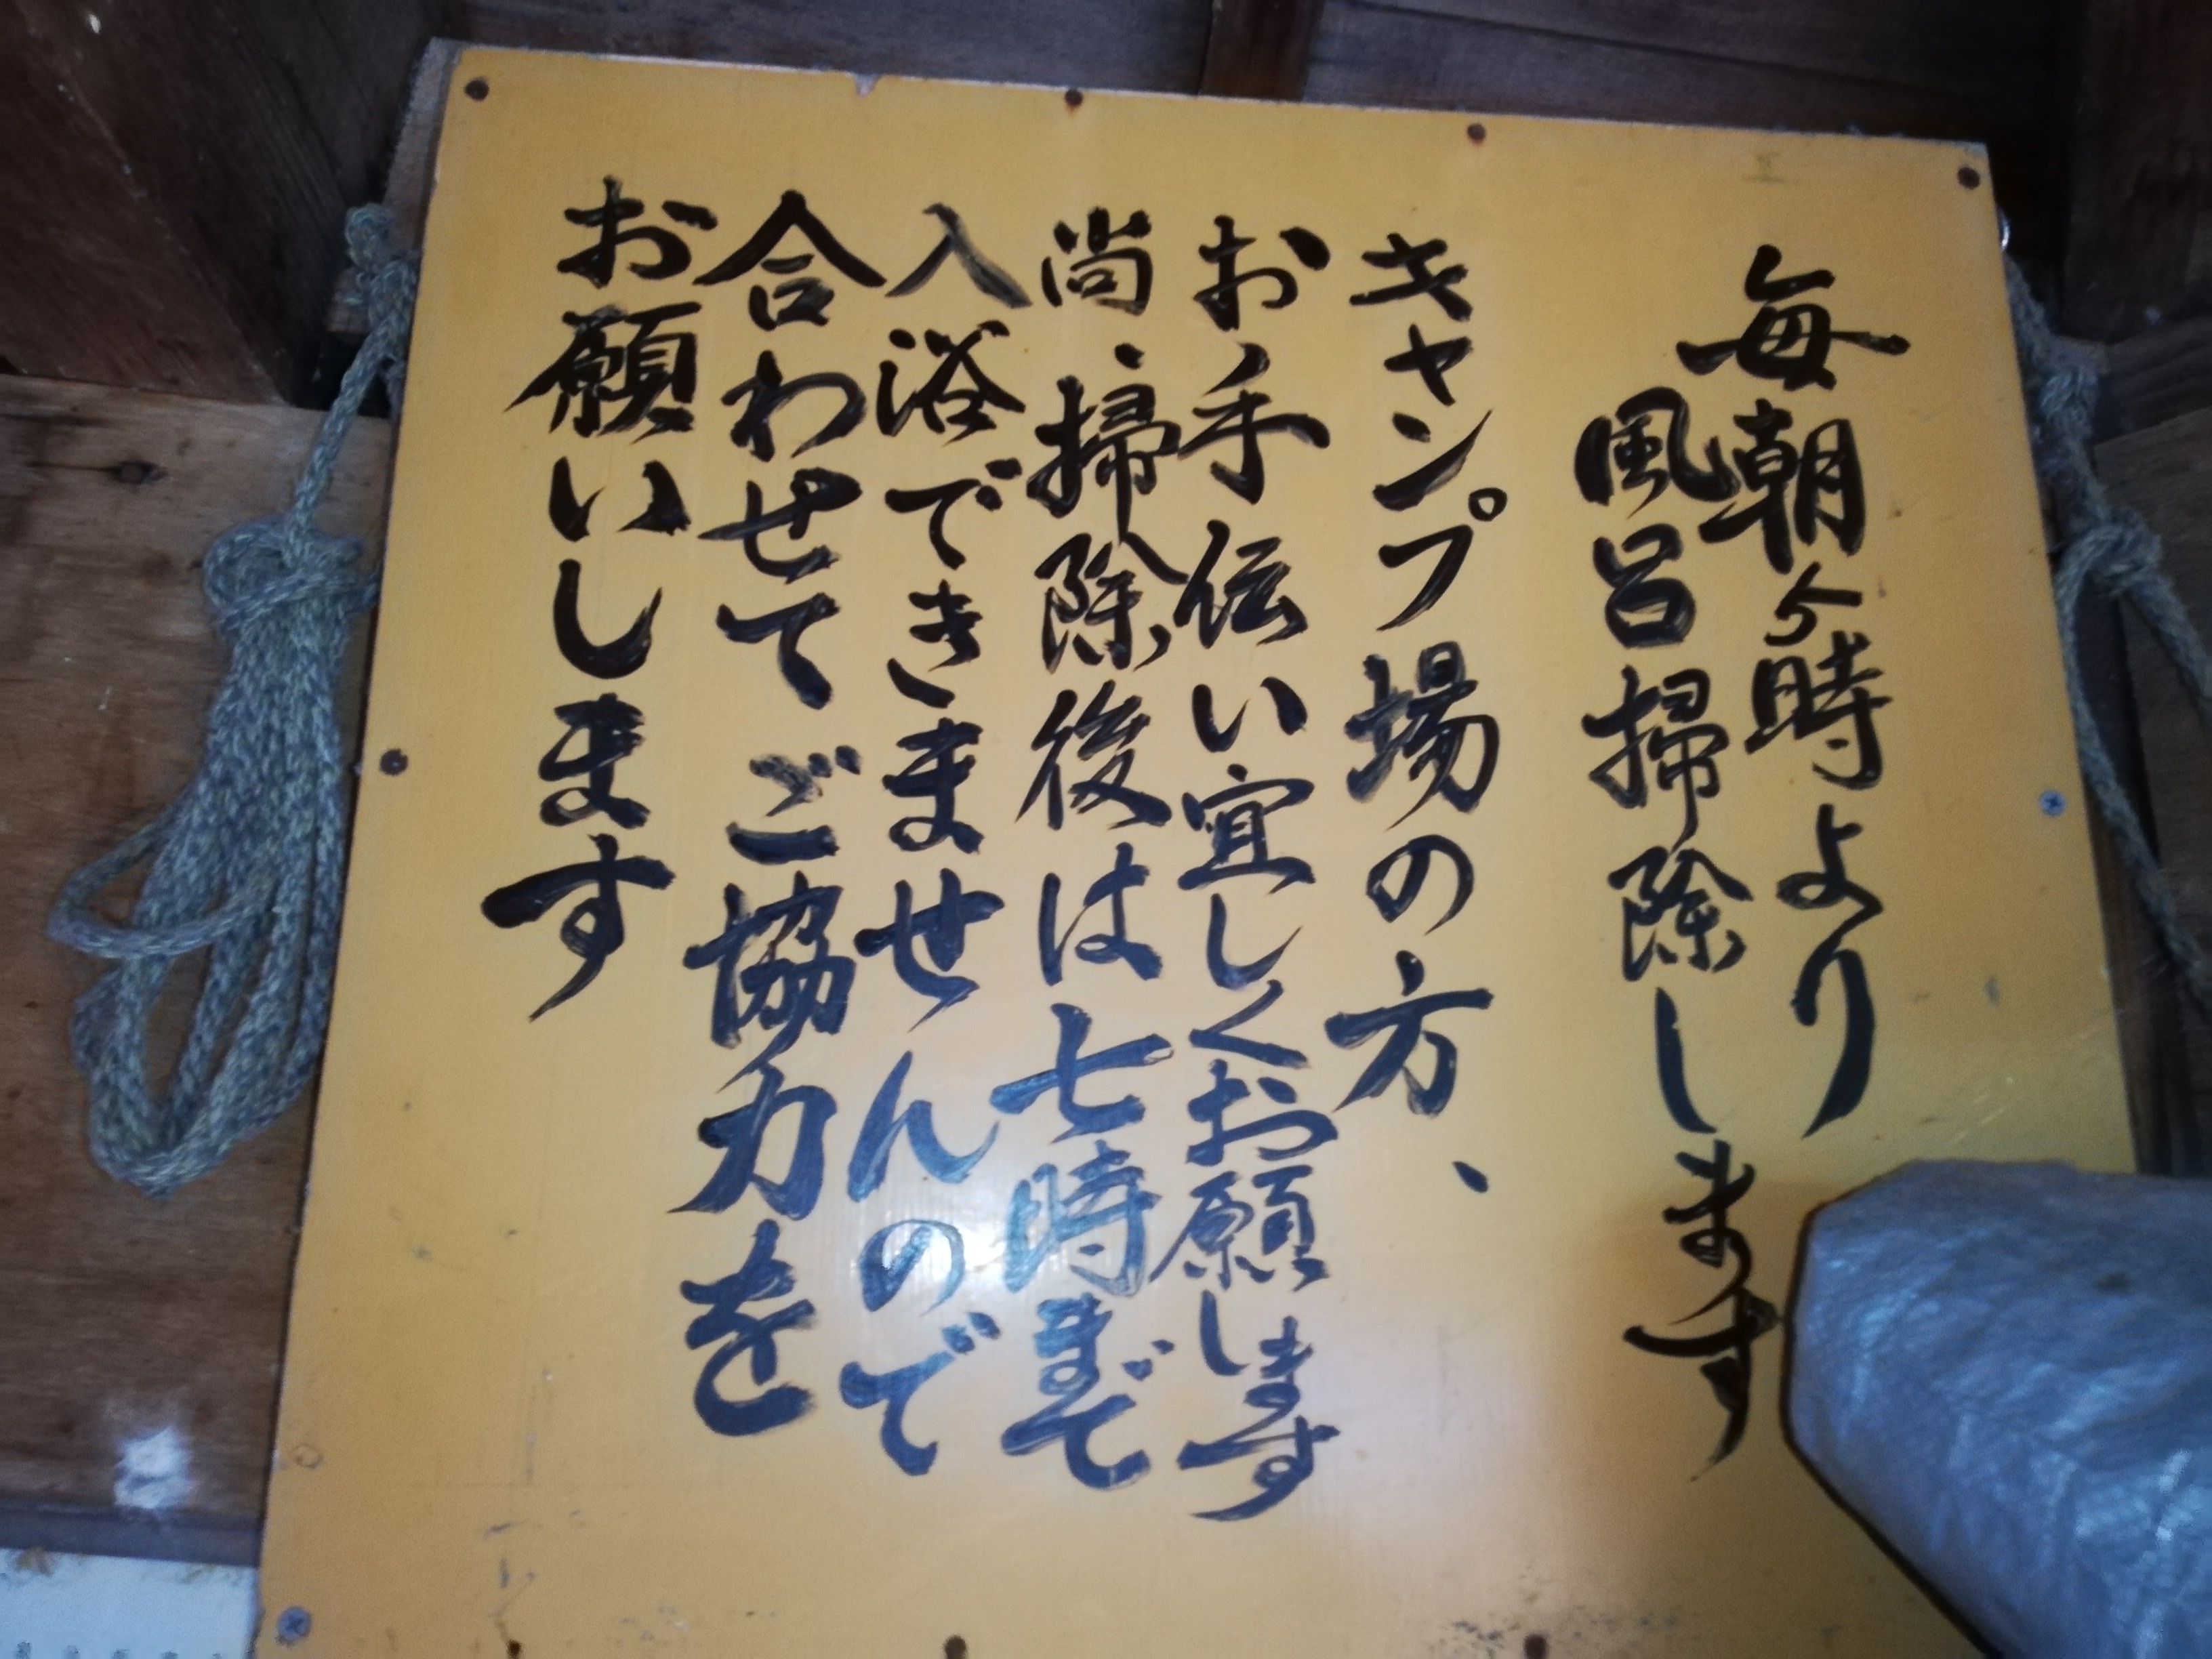 毎朝時より
風呂掃除します
キャンプ場の方、
お手伝い宜しくお願します
尚、掃除後は七時まで
入浴できませんので
合わせてご協力を
お願いします